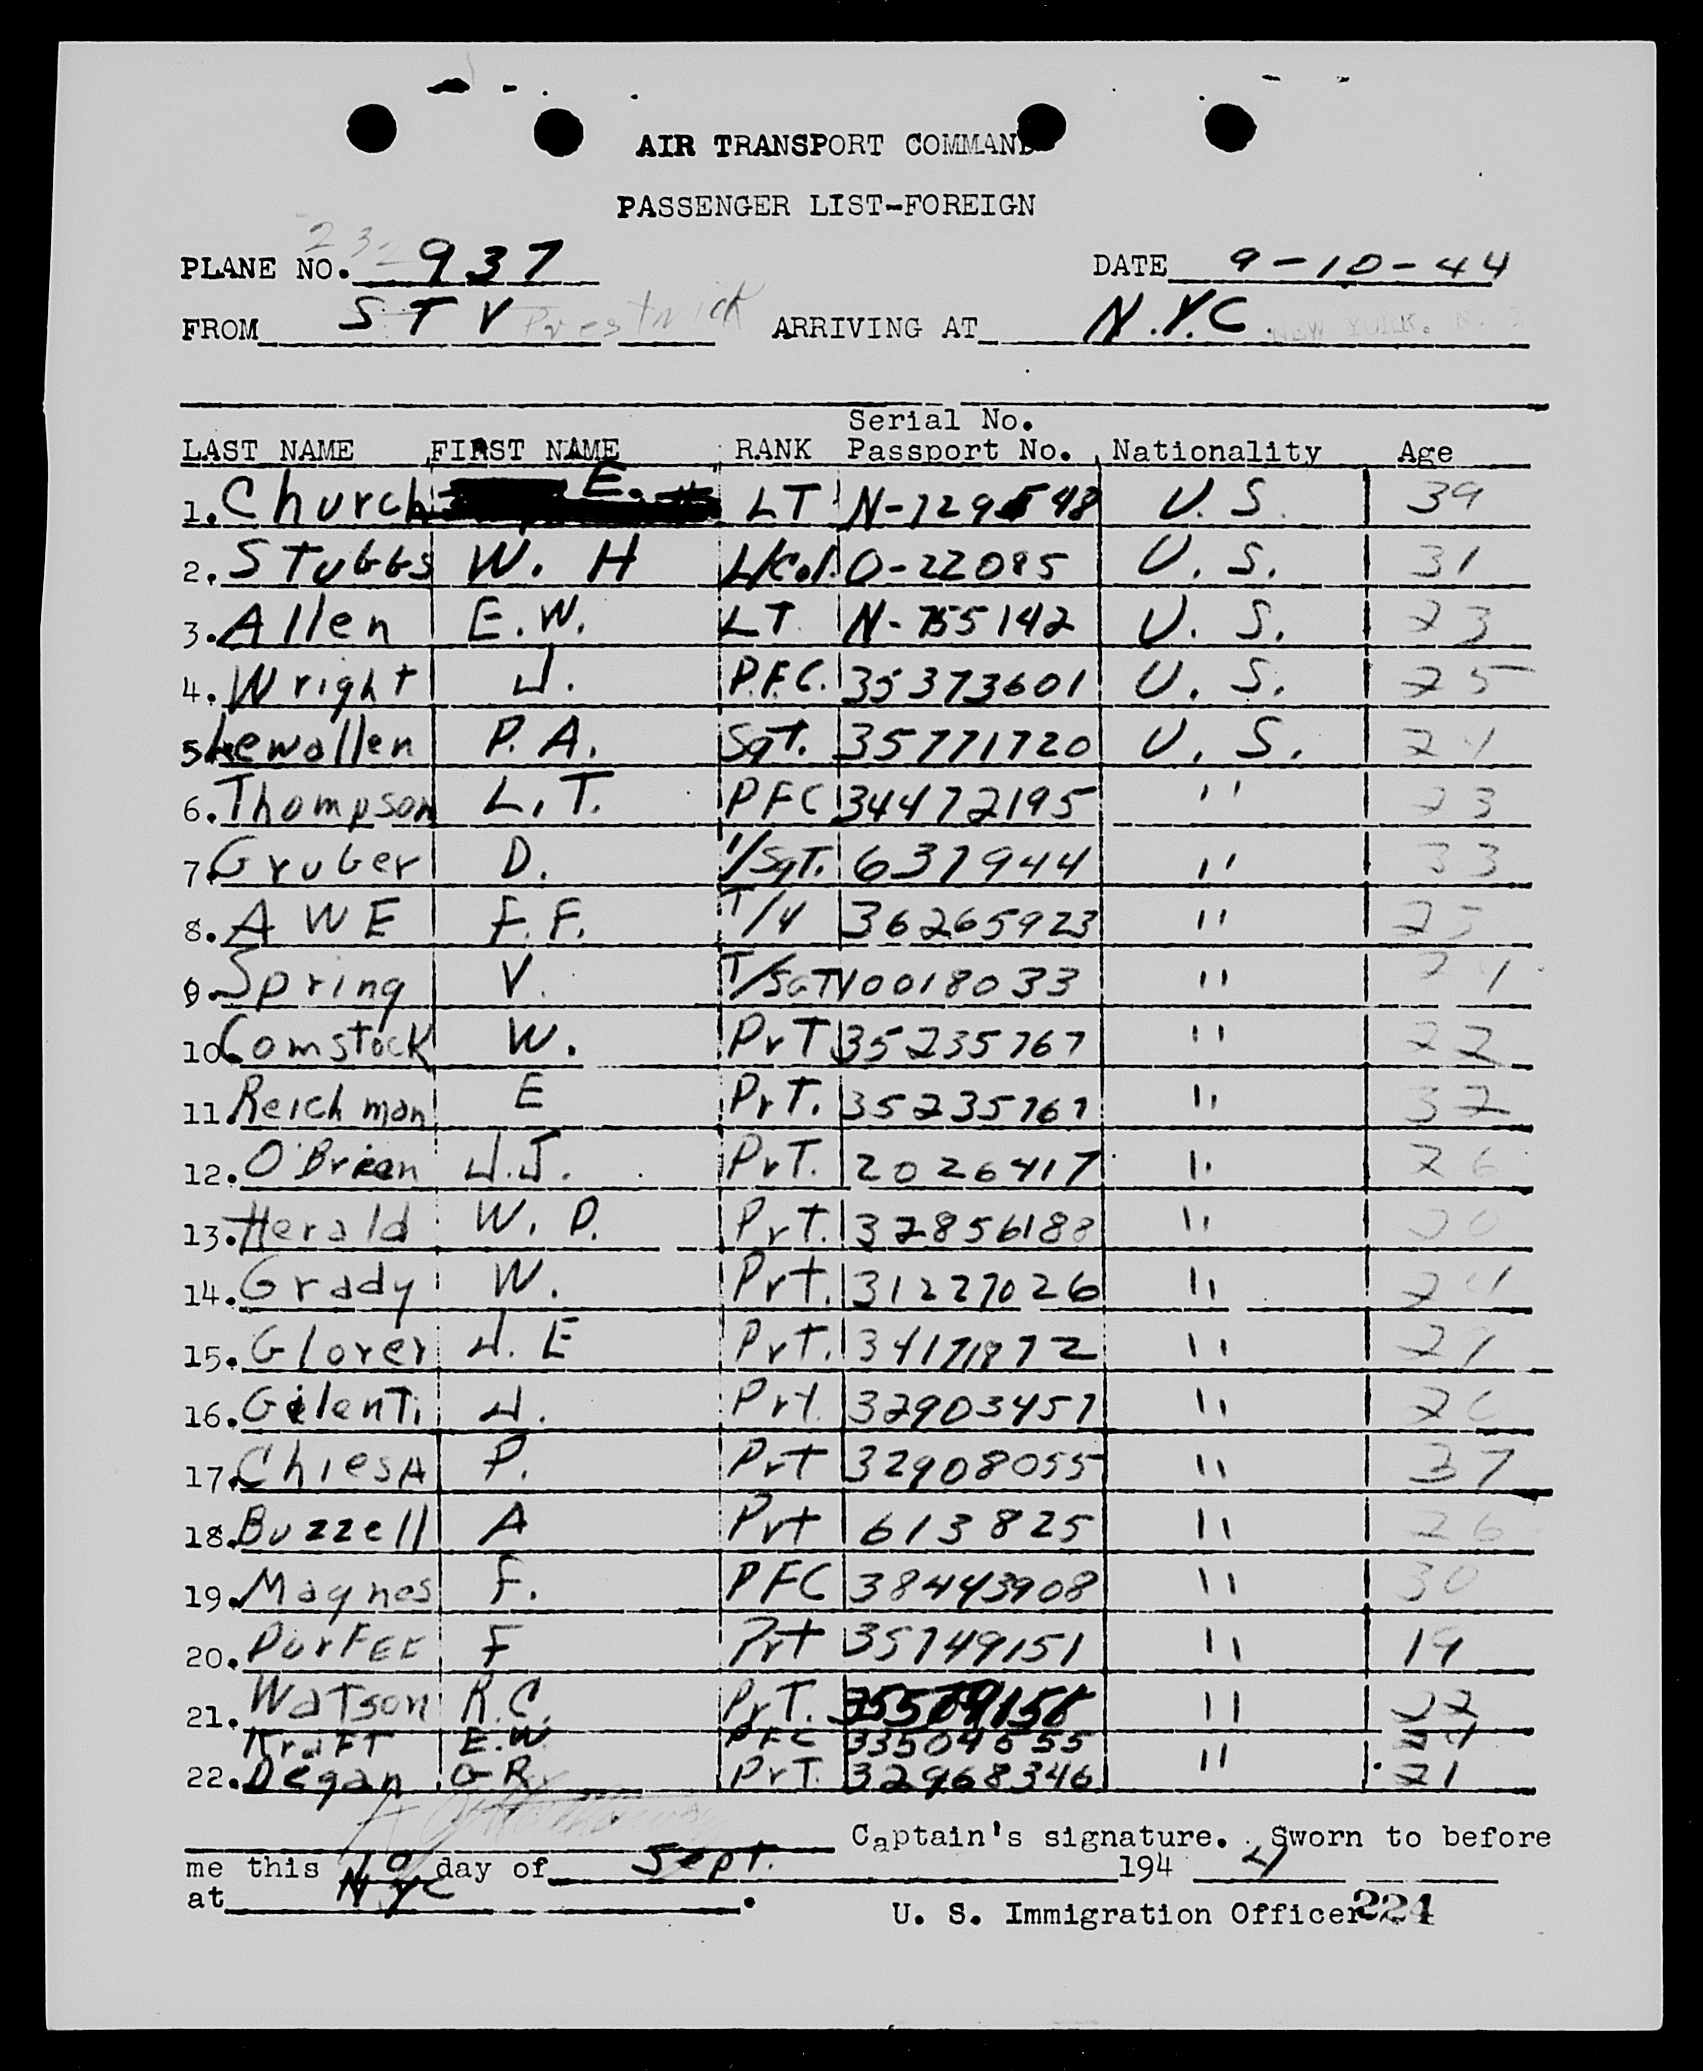 AIR TRANSPORT COMMAND
PASSENGER LIST-FOREIGN
PLANE NO. 232 937 DATE 9-10-44
FROM STV Prestwick ARRIVING AT N.Y.C. NEW YORK, N.Y.
Serial No.
LAST NAME FIRST NAME RANK Passport No. Nationality Age
1. Church E. LT N-729548 U.S. 39
2. Stubbs W. H L/Col. O-22085 U.S. 31
3. Allen E.W. LT N-755142 U.S. 23
4. Wright J. P.F.C. 35373601 U.S. 25
5. Lewallen P.A. Sgt. 35771720 U.S. 24
6. Thompson L.T. PFC 34472195 " 23
7. Gruber D. 1/Sgt. 637944 " 33
8. AWE F.F. T/4 36265923 " 25
9. Spring V. T/SGT 10018033 " 24
10. Comstock W. PvT 35235767 " 22
11. Reichman E PvT. 35235767 " 32
12. O'Brien J.J. PvT. 2026417 " 26
13. Herald W. D. PvT. 32856188 " 20
14. Grady W. Pvt. 31227026 " 24
15. Glover J. E Pvt. 34171972 " 29
16. Gilenti J. Pvt. 32903457 " 20
17. Chiesa P. Pvt 32908055 " 37
18. Buzzell A Pvt 613825 " 26
19. Magnes F. PFC 38443908 " 30
20. Durfee F Pvt 35749151 " 19
21. Watson R.C. PvT. " 22
Kraft E.W PFC 33504555 24
22. Degan G R PvT. 32968346 " 21
Captain's signature. Sworn to before
me this 10 day of Sept. 194 4
at NYC.
U. S. Immigration Officer 224